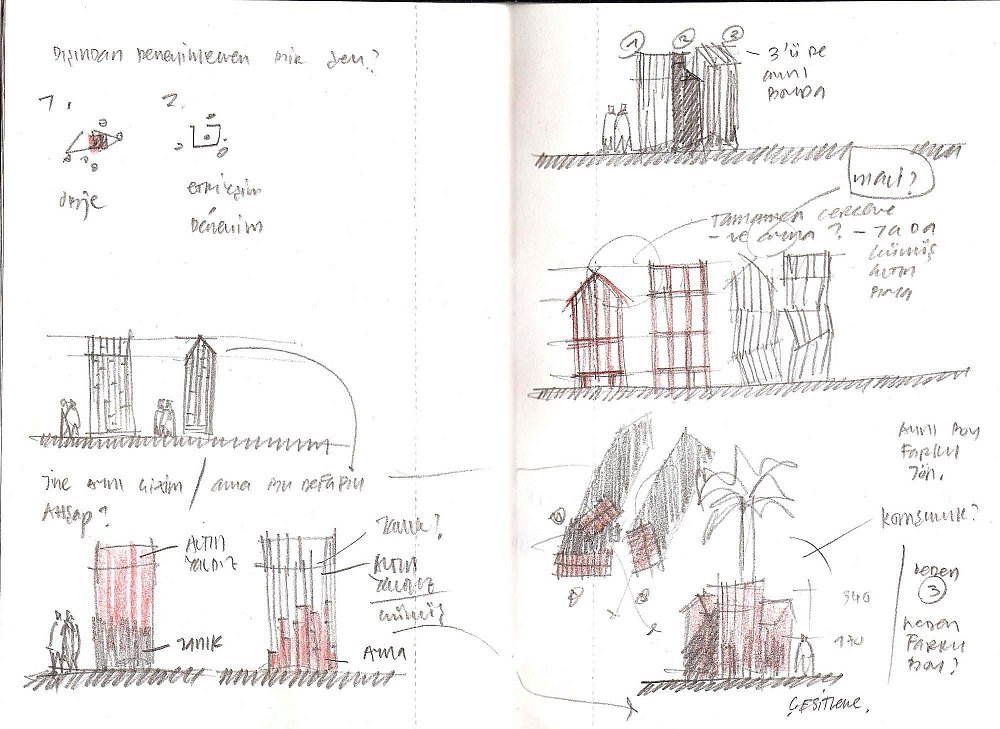 Dışından Deneyimlenen bir şey?
1.
2.
obje
etkileşim
Deneyim
yine aynı çizim / ama bu defa bu
Ahşap?
Altın
yaldız
yanık
yanık?
Altın
yaldız
gümüş
Ayna
1 2 3
3'ü de
aynı
boyda
mavi?
Tamamen çerçeve
- ve ayna? - ya da
gümüş
altın
boya
Aynı boy
Farklı
yön.
komşuluk?
neden
3
neden
Farklı
boy?
340
170
ÇEŞİTLEME.